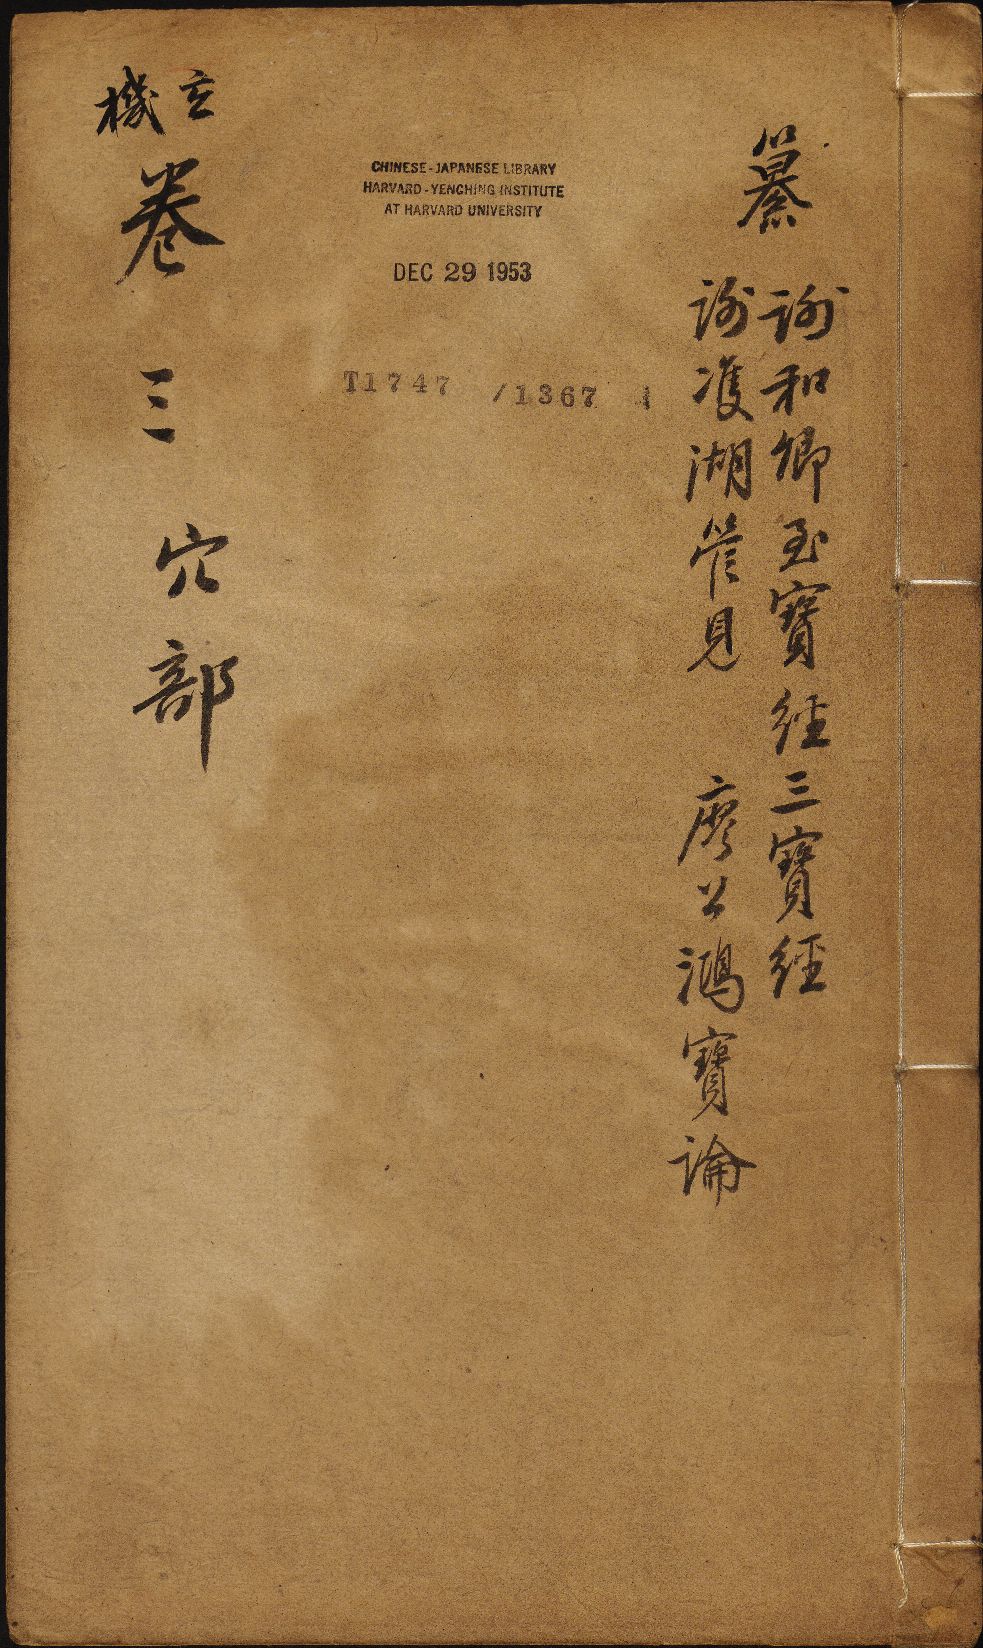 纂
謝和卿至寶經三寶經
謝湖管見 廖公鴻寶論
CHINESE-JAPANESE LIBRARY
HARVARD-YENCHING INSTITUTE
AT HARVARD UNIVERSITY
DEC 29 1953
T1747 /1367
玄機
卷三 穴部